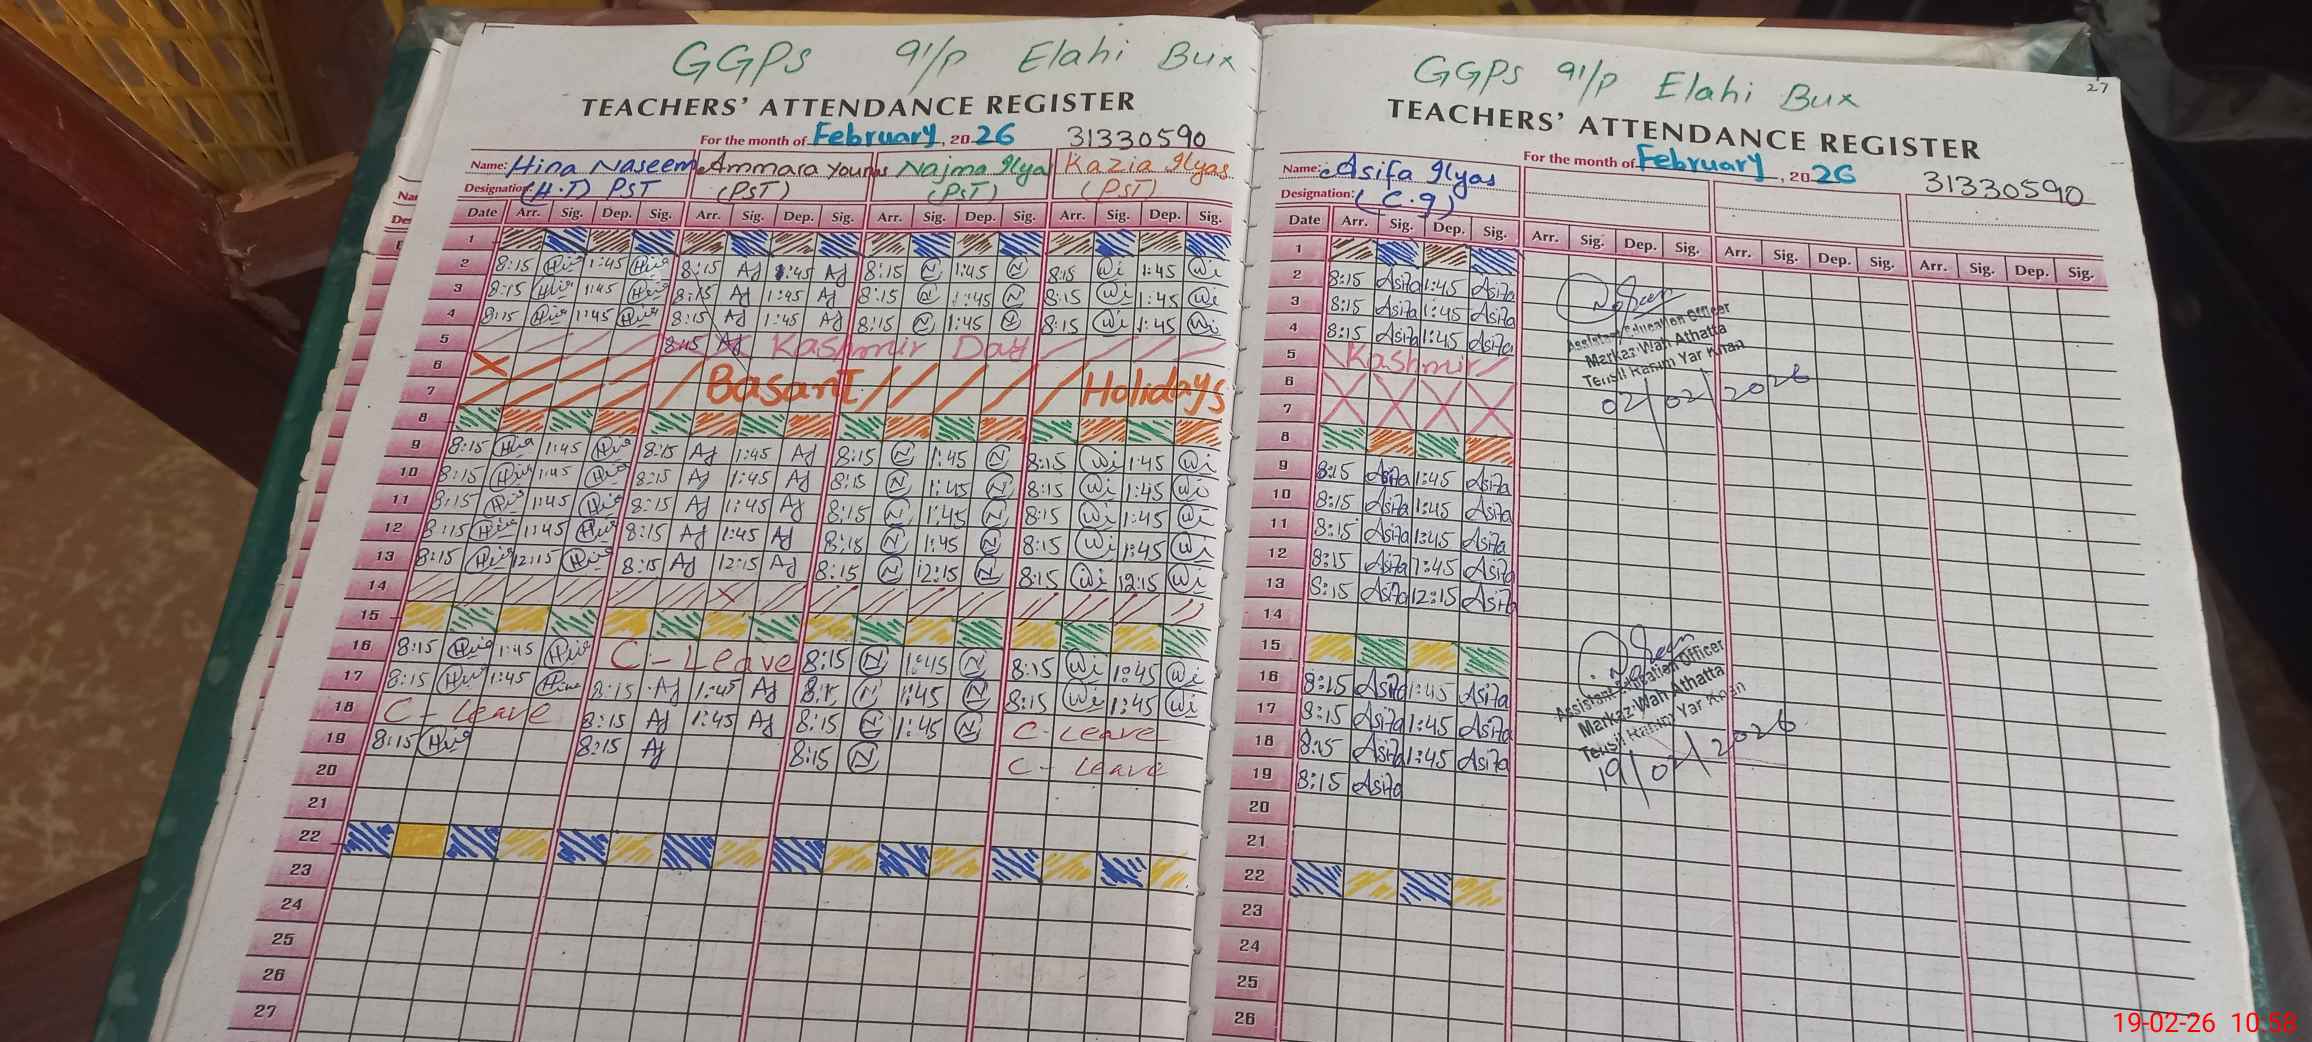 GGPS 91/P Elahi Bux
TEACHERS' ATTENDANCE REGISTER
For the month of February, 2026 31330590
Name: Hina Naseem Ammara Younus Najma Ilyas Razia Ilyas
Designation: (H.T) PST (PST) (PST) (PST)
Date Arr. Sig. Dep. Sig. Arr. Sig. Dep. Sig. Arr. Sig. Dep. Sig. Arr. Sig. Dep. Sig.
1
2 8:15 1:45 8:15 AJ 1:45 AJ 8:15 N 1:45 N 8:15 1:45
3 8:15 1:45 8:15 AJ 1:45 AJ 8:15 N 1:45 N 8:15 1:45
4 8:15 1:45 8:15 AJ 1:45 AJ 8:15 N 1:45 N 8:15 1:45
5 8:15 AJ Kashmir Day
6
7 Basant Holidays
8
9 8:15 1:45 8:15 AJ 1:45 AJ 8:15 N 1:45 N 8:15 1:45
10 8:15 1:45 8:15 AJ 1:45 AJ 8:15 N 1:45 N 8:15 1:45
11 8:15 1:45 8:15 AJ 1:45 AJ 8:15 N 1:45 N 8:15 1:45
12 8:15 1:45 8:15 AJ 1:45 AJ 8:15 N 1:45 N 8:15 1:45
13 8:15 12:15 8:15 AJ 12:15 AJ 8:15 N 12:15 N 8:15 12:15
14
15
16 8:15 1:45 C-Leave 8:15 N 1:45 N 8:15 1:45
17 8:15 1:45 8:15 AJ 1:45 AJ 8:15 N 1:45 N 8:15 1:45
18 C-Leave 8:15 AJ 1:45 AJ 8:15 N 1:45 N C-Leave
19 8:15 8:15 AJ 8:15 N C-Leave
20
21
22
23
24
25
26
27
27
GGPS 91/P Elahi Bux
TEACHERS' ATTENDANCE REGISTER
For the month of February, 2026 31330590
Name: Asifa Ilyas
Designation: (C.g)
Date Arr. Sig. Dep. Sig. Arr. Sig. Dep. Sig. Arr. Sig. Dep. Sig. Arr. Sig. Dep. Sig.
1
2 8:15 Asifa 1:45 Asifa
3 8:15 Asifa 1:45 Asifa
4 8:15 Asifa 1:45 Asifa
5 Kashmir
6
7
8
9 8:15 Asifa 1:45 Asifa
10 8:15 Asifa 1:45 Asifa
11 8:15 Asifa 1:45 Asifa
12 8:15 Asifa 1:45 Asifa
13 8:15 Asifa 12:15 Asifa
14
15
16 8:15 Asifa 1:45 Asifa
17 8:15 Asifa 1:45 Asifa
18 8:15 Asifa 1:45 Asifa
19 8:15 Asifa
20
21
22
23
24
25
26
Assistant Education Officer
Markaz Wah Athatta
Tehsil Rahim Yar Khan
02/02/2026
Assistant Education Officer
Markaz Wah Athatta
Tehsil Rahim Yar Khan
19/02/2026
19-02-26 10:58